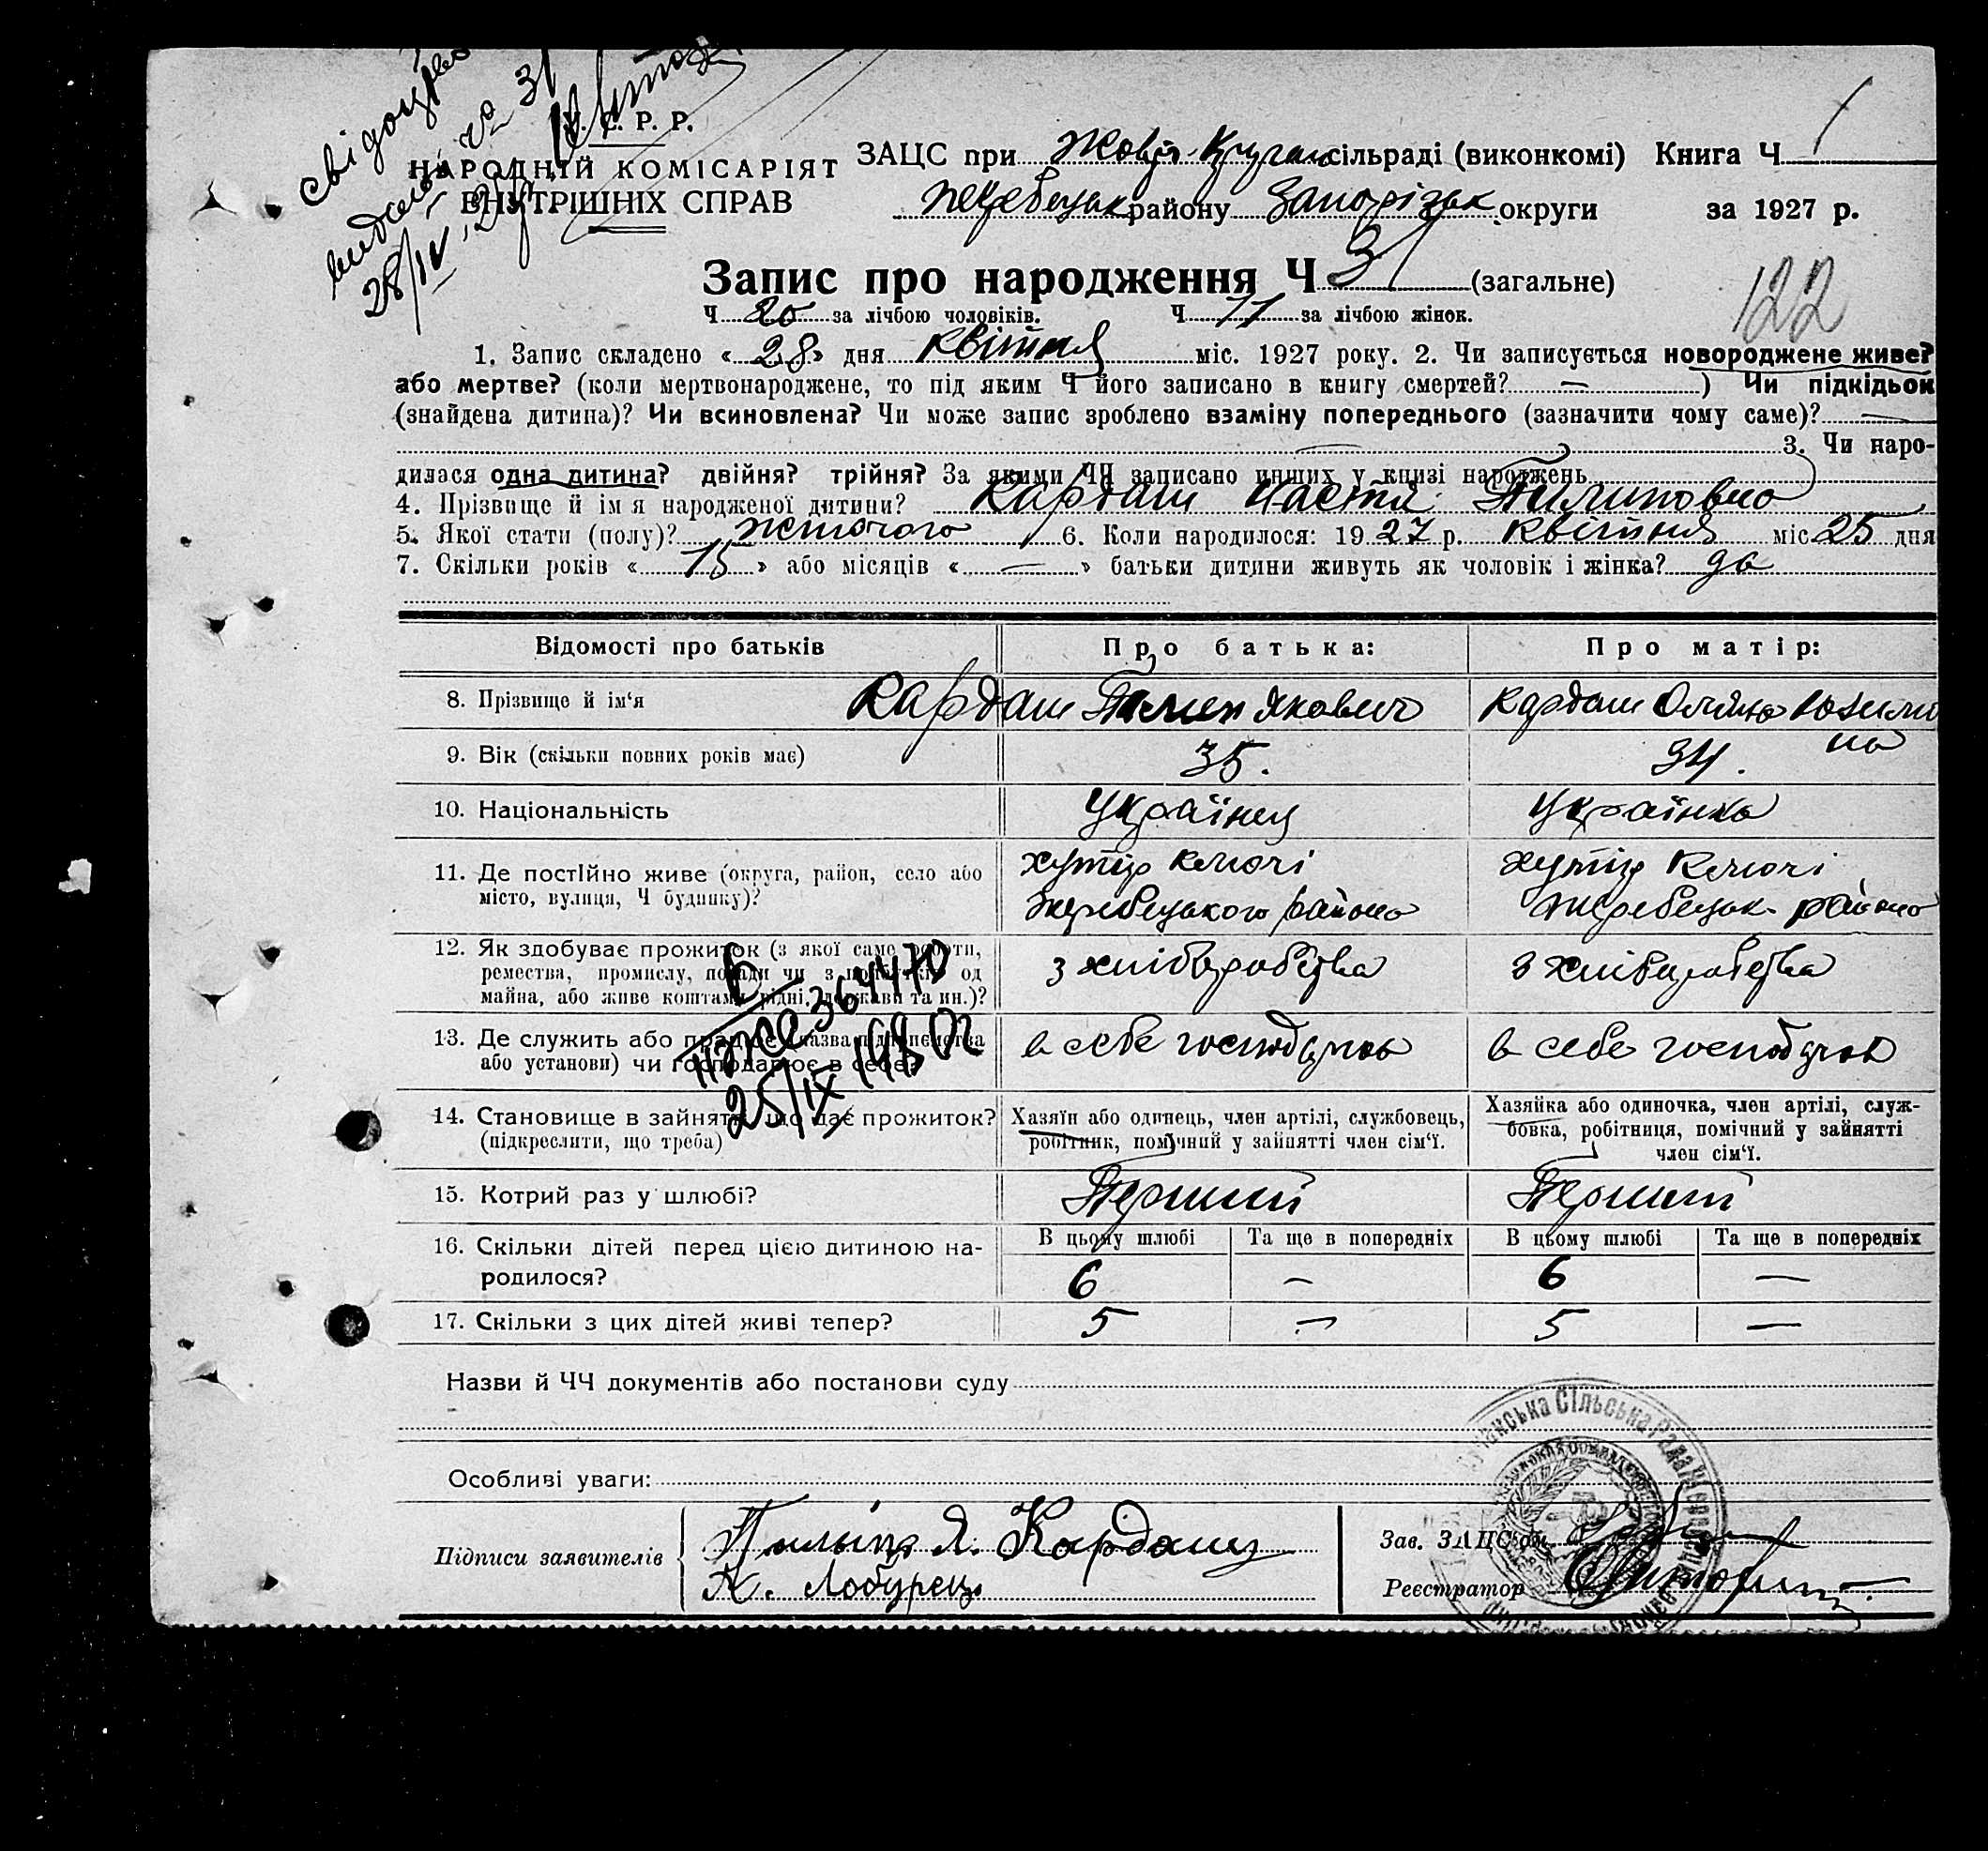 свідоцтво
видано за 31
28/IV 27 р.
У. С. Р. Р.
НАРОДНІЙ КОМІСАРІЯТ
ВНУТРІШНІХ СПРАВ
ЗАЦС при сільраді (виконкомі) Книга Ч 1
Жеребецьк району Запорізьк округи за 1927 р.
Запис про народження Ч 31 (загальне)
122
Ч 20 за лічбою чоловіків. Ч 11 за лічбою жінок.
1. Запис складено « 28 » дня квітня міс. 1927 року. 2. Чи записується новороджене живе?
або мертве? (коли мертвонароджене, то під яким Ч його записано в книгу смертей? — ) Чи підкідьок
(знайдена дитина)? Чи всиновлена? Чи може запис зроблено взаміну попереднього (зазначити чому саме)? —
3. Чи наро-
дилася одна дитина? двійня? трійня? За якими ЧЧ записано инших у книзі народжень
4. Прізвище й ім'я народженої дитини? Кардаш Настя Пилиповна
5. Якої стати (полу)? жіночого 6. Коли народилося: 19 27 р. квітня міс. 25 дня
7. Скільки років « 15 » або місяців « — » батьки дитини живуть як чоловік і жінка? да
Відомості про батьків Про батька: Про матір:
8. Прізвище й ім'я Кардаш Пилип Якович Кардаш
9. Вік (скільки повних років має) 35. 34.
10. Національність Українец Українка
11. Де постійно живе (округа, район, село або хутір Ключі хутір Ключі
місто, вулиця, Ч будинку)? Жеребецького района Жеребецьк. района
12. Як здобуває прожиток (з якої саме роботи,
ремества, промислу, посади чи з прибутків од з хліборобства з хліборобства
майна, або живе коштами рідні, держави та ин.)?
13. Де служить або працює (назва підприємства в себе господарюв в себе господарюв
або установи) чи господарює в себе?
364470
25/IX
14. Становище в зайнятті, що дає прожиток? Хазяїн або одинець, член артілі, службовець, Хазяйка або одиночка, член артілі, служ-
(підкреслити, що треба) робітник, помічний у зайнятті член сім'ї. бовка, робітниця, помічний у зайнятті
член сім'ї.
15. Котрий раз у шлюбі? Перший Перший
16. Скільки дітей перед цією дитиною на- В цьому шлюбі Та ще в попередніх В цьому шлюбі Та ще в попередніх
родилося? 6 — 6 —
17. Скільки з цих дітей живі тепер? 5 — 5 —
Назви й ЧЧ документів або постанови суду
Особливі уваги:
Підписи заявителів Пилип Я. Кардаш
К. Лобурець
Зав. ЗАЦС'ом
Реєстратор
Сільська Рада